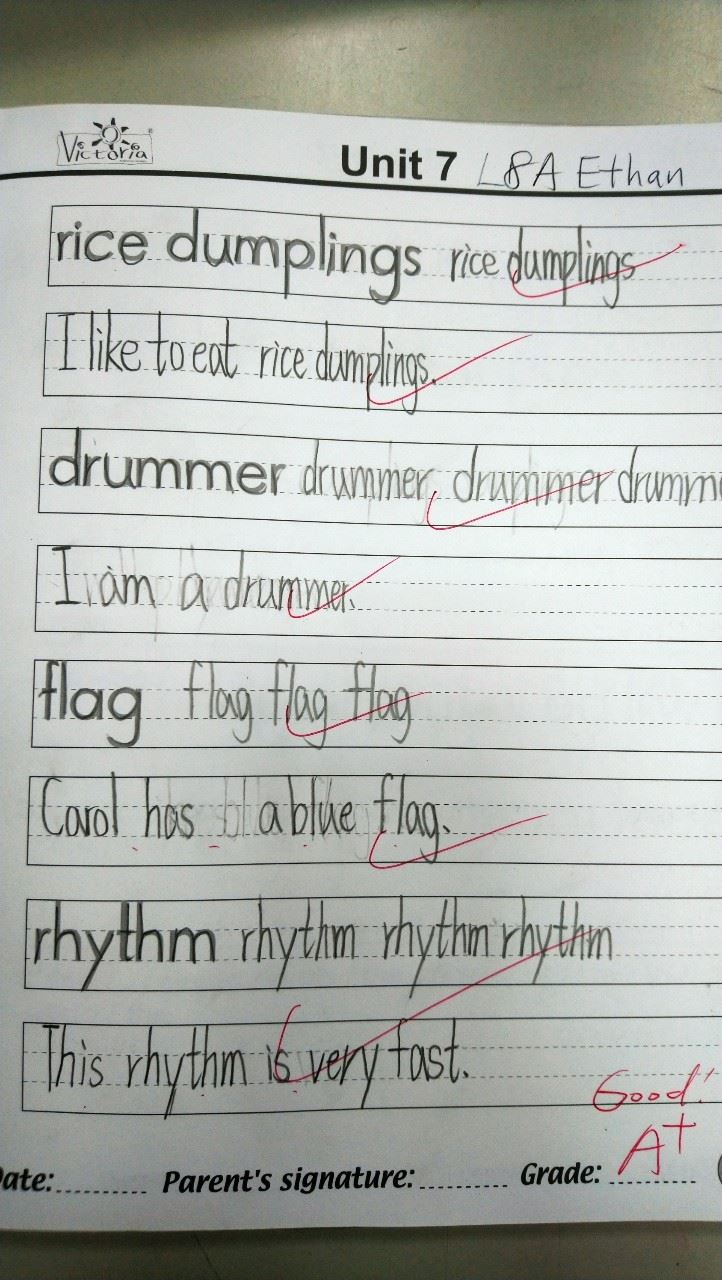 Victoria
Unit 7 L8A Ethan
rice dumplings rice dumplings
I like to eat rice dumplings.
drummer drummer drummer drumm
I am a drummer.
flag flag flag flag
Carol has a blue flag.
rhythm rhythm rhythm rhythm
This rhythm is very fast.
Good!
A+
ate:........... Parent's signature:........... Grade:...........